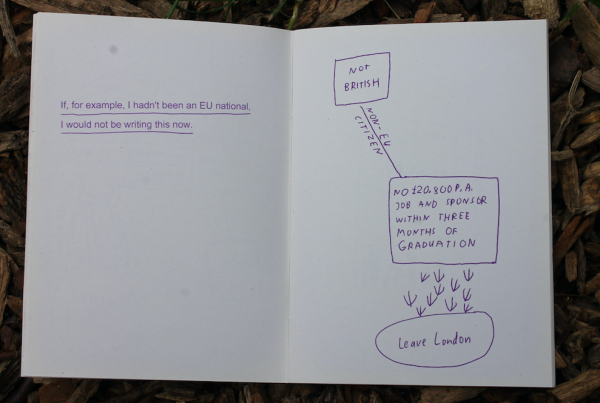 If, for example, I hadn't been an EU national,
I would not be writing this now.
NOT
BRITISH
NON-EU
CITIZEN
NO £20.800 P.A.
JOB AND SPONSOR
WITHIN THREE
MONTHS OF
GRADUATION
Leave London